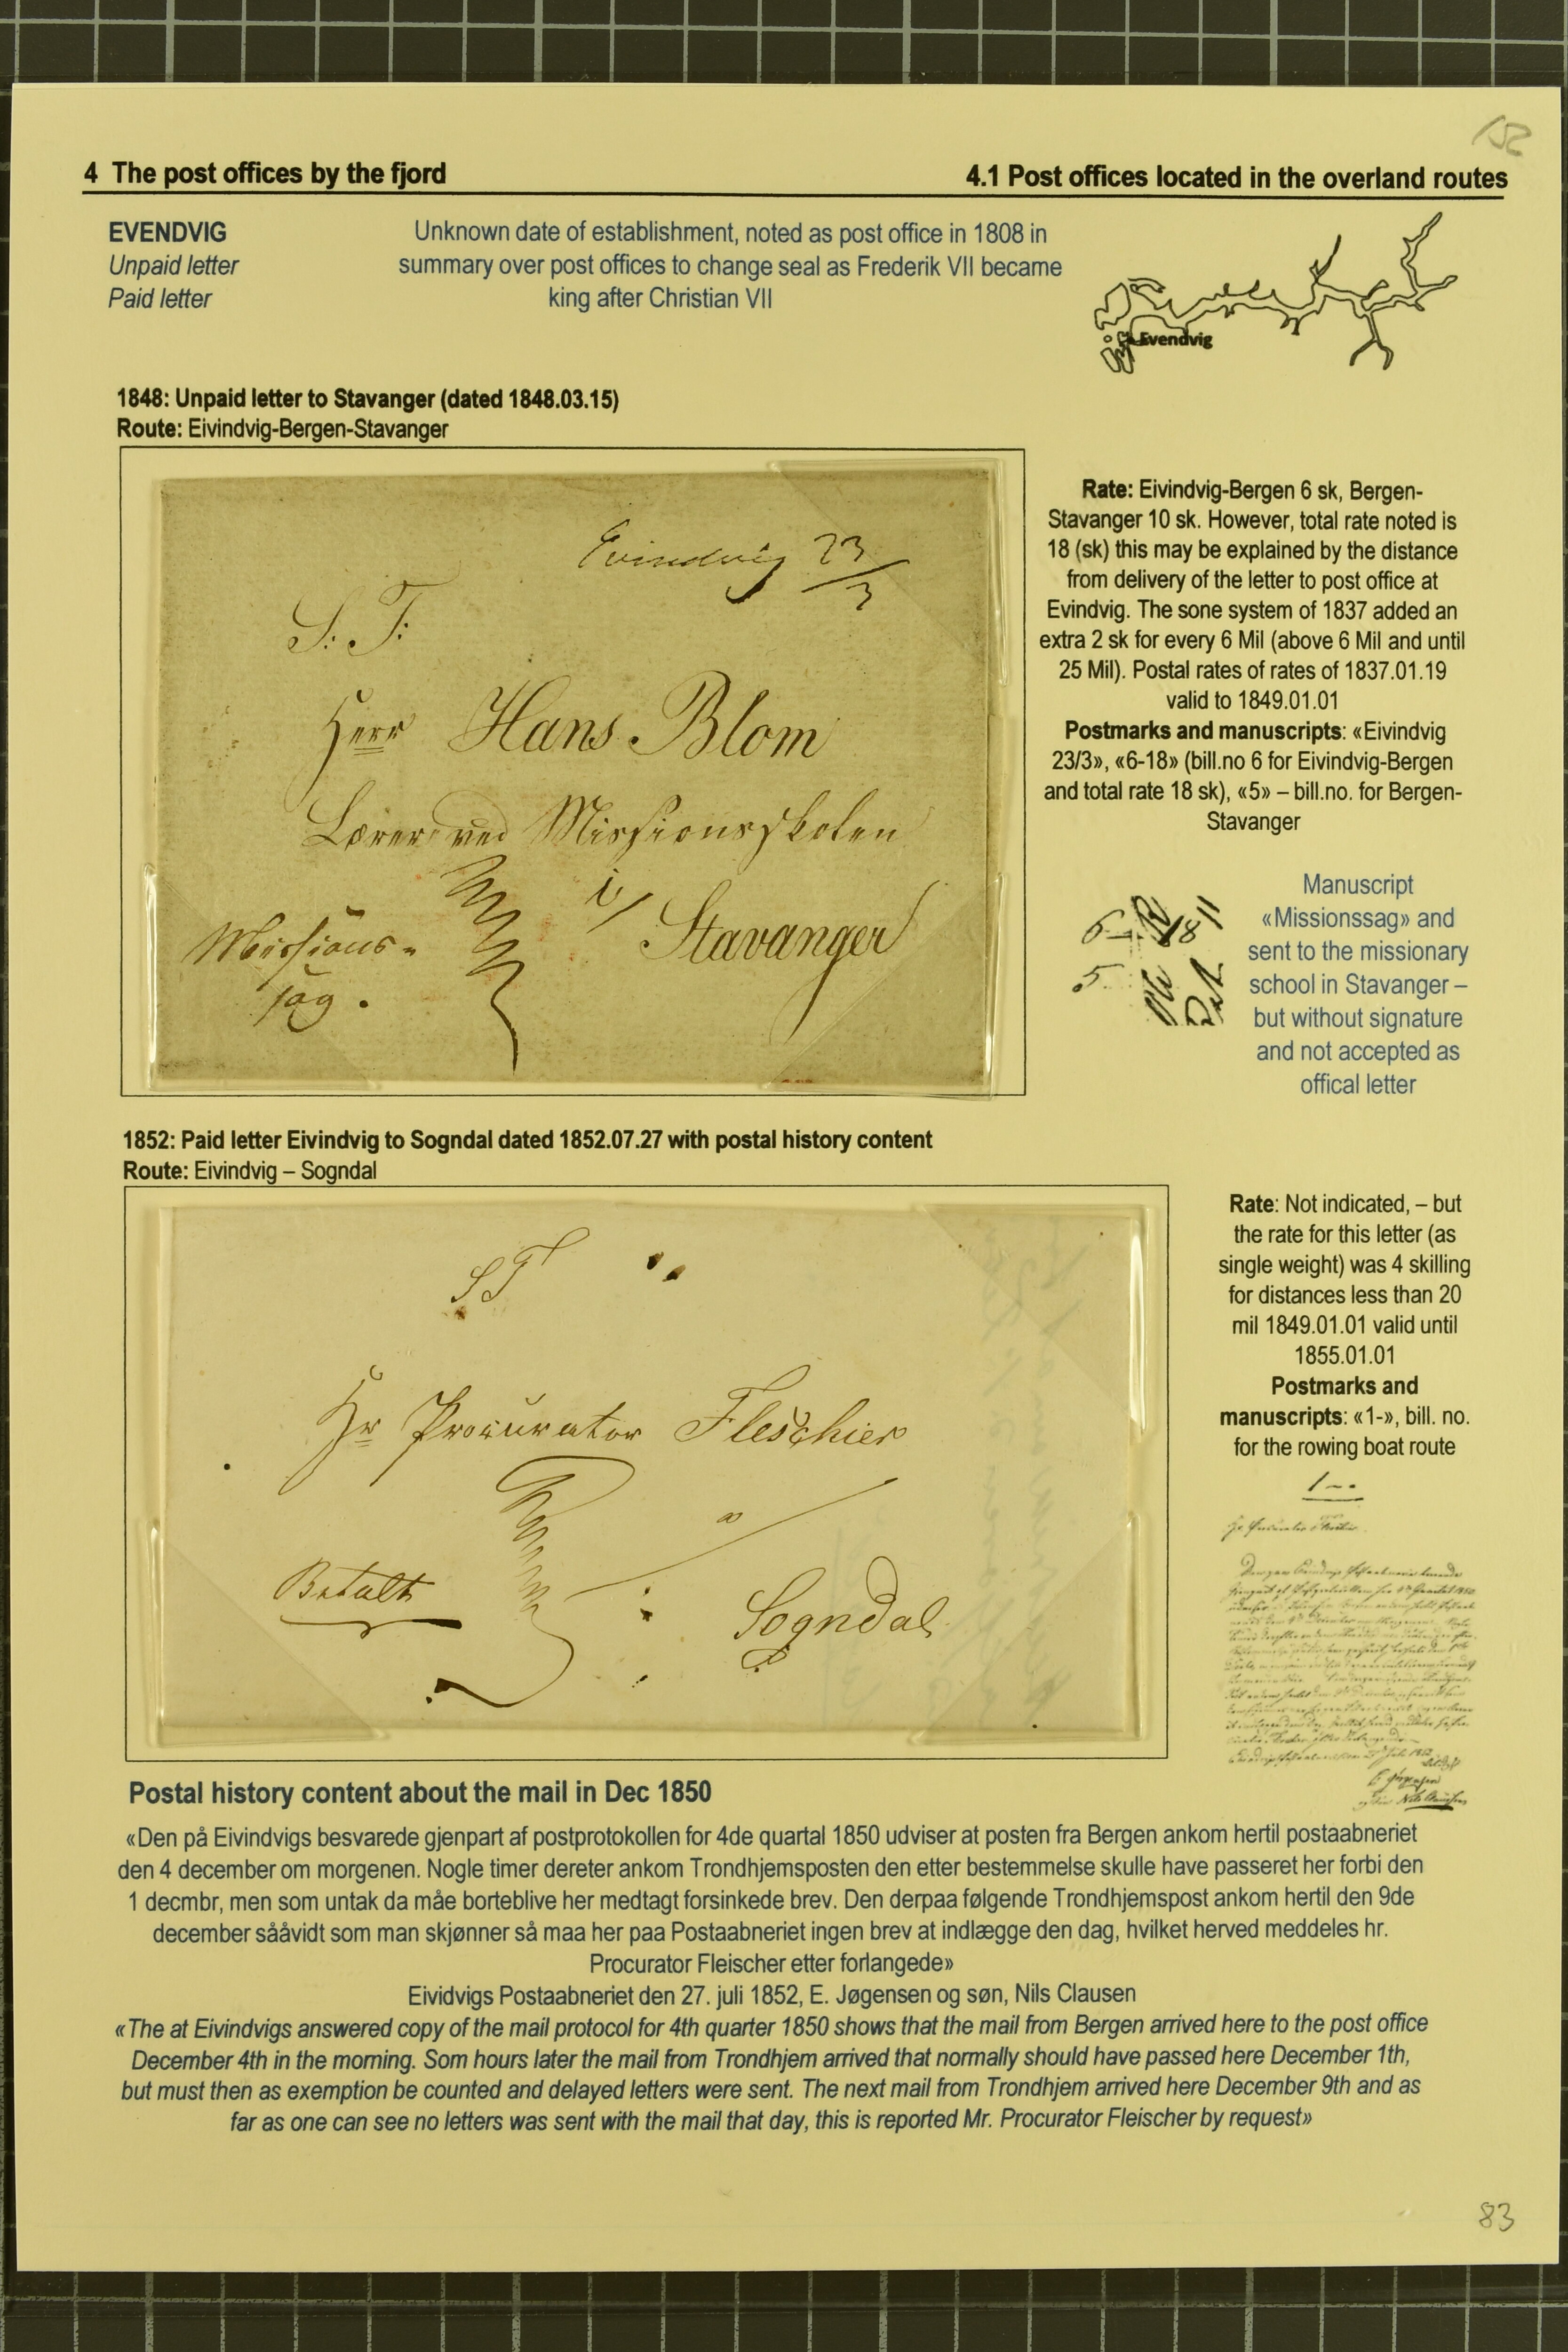 152
4 The post offices by the fjord
4.1 Post offices located in the overland routes
EVENDVIG
Unpaid letter
Paid letter
Unknown date of establishment, noted as post office in 1808 in
summary over post offices to change seal as Frederik VII became
king after Christian VII
Evendvig
1848: Unpaid letter to Stavanger (dated 1848.03.15)
Route: Eivindvig-Bergen-Stavanger
Evindvig 23/3
S. T.
Herr Hans Blom
Lærer ved Missionsskolen
i/ Stavanger
Missions-
sag.
Rate: Eivindvig-Bergen 6 sk, Bergen-
Stavanger 10 sk. However, total rate noted is
18 (sk) this may be explained by the distance
from delivery of the letter to post office at
Evindvig. The sone system of 1837 added an
extra 2 sk for every 6 Mil (above 6 Mil and until
25 Mil). Postal rates of rates of 1837.01.19
valid to 1849.01.01
Postmarks and manuscripts: «Eivindvig
23/3», «6-18» (bill.no 6 for Eivindvig-Bergen
and total rate 18 sk), «5» – bill.no. for Bergen-
Stavanger
6 18
5
Manuscript
«Missionssag» and
sent to the missionary
school in Stavanger –
but without signature
and not accepted as
offical letter
1852: Paid letter Eivindvig to Sogndal dated 1852.07.27 with postal history content
Route: Eivindvig – Sogndal
ST
Hr Procurator Fleischer
a/
Betalt
Sogndal
Rate: Not indicated, – but
the rate for this letter (as
single weight) was 4 skilling
for distances less than 20
mil 1849.01.01 valid until
1855.01.01
Postmarks and
manuscripts: «1-», bill. no.
for the rowing boat route
1--
Postal history content about the mail in Dec 1850
«Den på Eivindvigs besvarede gjenpart af postprotokollen for 4de quartal 1850 udviser at posten fra Bergen ankom hertil postaabneriet
den 4 december om morgenen. Nogle timer dereter ankom Trondhjemsposten den etter bestemmelse skulle have passeret her forbi den
1 decmbr, men som untak da måe borteblive her medtagt forsinkede brev. Den derpaa følgende Trondhjemspost ankom hertil den 9de
december sååvidt som man skjønner så maa her paa Postaabneriet ingen brev at indlægge den dag, hvilket herved meddeles hr.
Procurator Fleischer etter forlangede»
Eividvigs Postaabneriet den 27. juli 1852, E. Jøgensen og søn, Nils Clausen
«The at Eivindvigs answered copy of the mail protocol for 4th quarter 1850 shows that the mail from Bergen arrived here to the post office
December 4th in the morning. Som hours later the mail from Trondhjem arrived that normally should have passed here December 1th,
but must then as exemption be counted and delayed letters were sent. The next mail from Trondhjem arrived here December 9th and as
far as one can see no letters was sent with the mail that day, this is reported Mr. Procurator Fleischer by request»
83